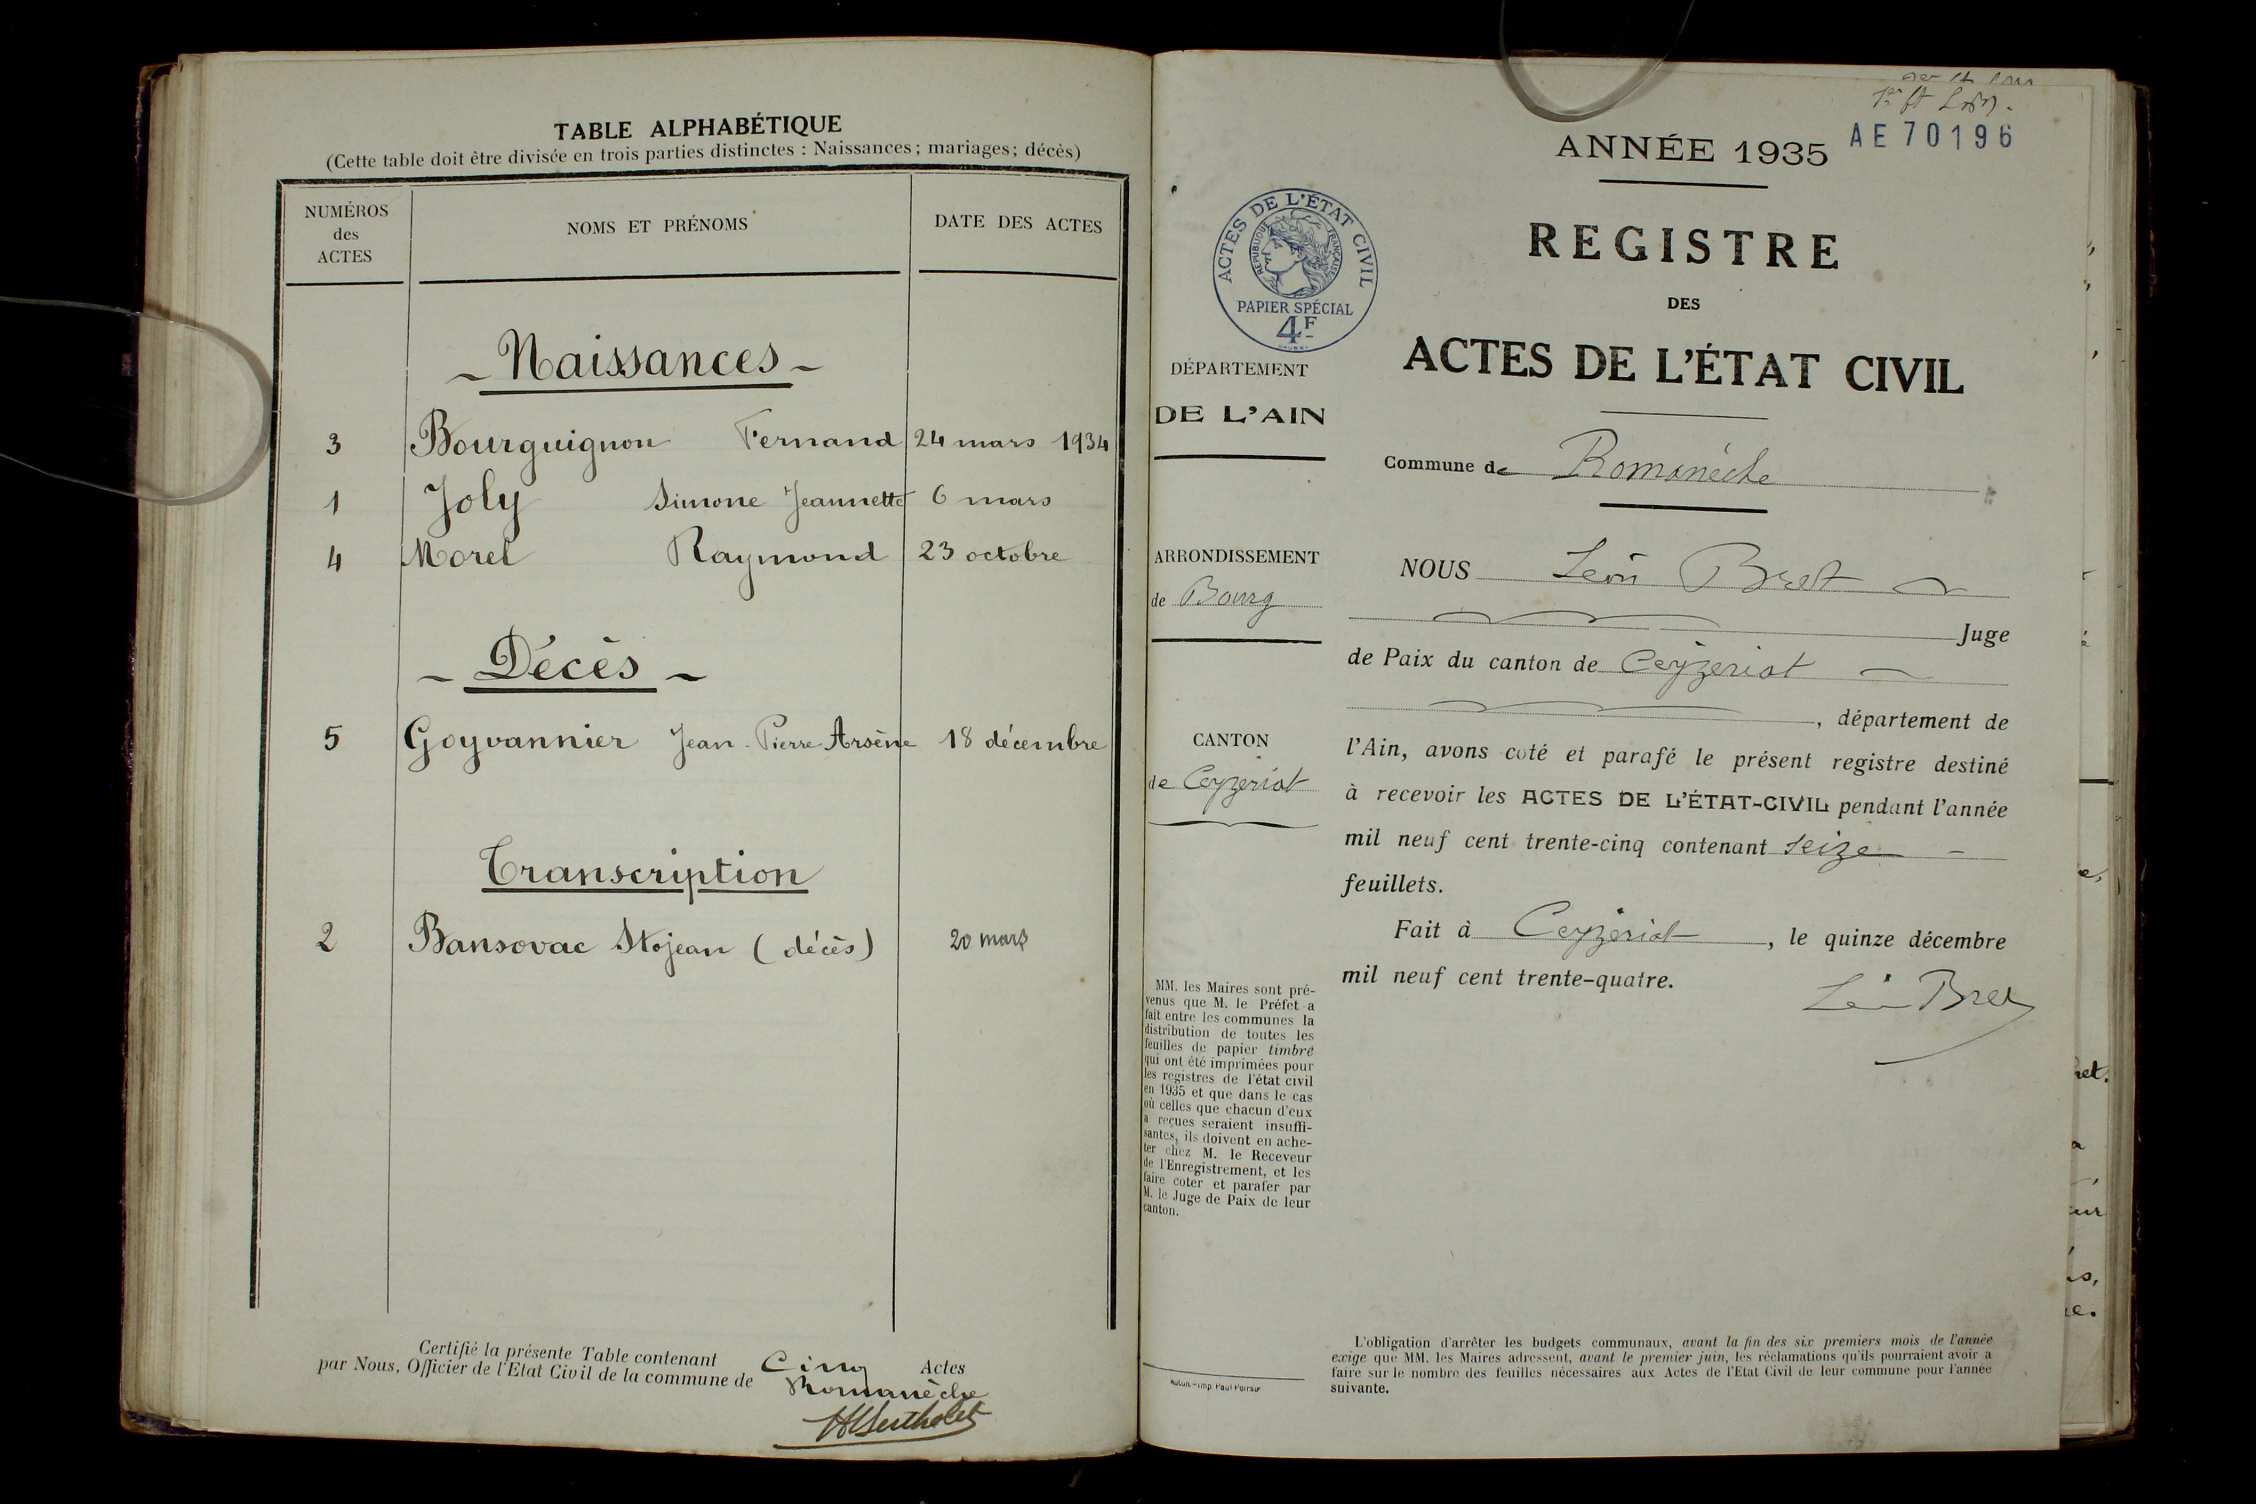 TABLE ALPHABÉTIQUE
(Cette table doit être divisée en trois parties distinctes : Naissances; mariages; décès)
NUMÉROS
des
ACTES
NOMS ET PRÉNOMS
DATE DES ACTES
- Naissances -
3 Bourguignon Fernand 24 mars 1934
1 Joly Simone Jeannette 6 mars
4 Morel Raymond 23 octobre
- Décès -
5 Goyvannier Jean-Pierre Arsène 18 décembre
Transcription
2 Bansovac Stojean (décès) 20 mars
Certifié la présente Table contenant Cinq Actes
par Nous, Officier de l'Etat Civil de la commune de Romanèche
HBerthelet
AE 70196
ANNÉE 1935
REGISTRE
DES
ACTES DE L'ÉTAT CIVIL
ACTES DE L'ÉTAT CIVIL
RÉPUBLIQUE FRANÇAISE
PAPIER SPÉCIAL
4F
DÉPARTEMENT
DE L'AIN
ARRONDISSEMENT
de Bourg
CANTON
de Ceyzeriat
MM. les Maires sont pré-
venus que M. le Préfet a
fait entre les communes la
distribution de toutes les
feuilles de papier timbré
qui ont été imprimées pour
les registres de l'état civil
en 1935 et que dans le cas
où celles que chacun d'eux
a reçues seraient insuffi-
santes, ils doivent en ache-
ter chez M. le Receveur
de l'Enregistrement, et les
faire coter et parafer par
M. le Juge de Paix de leur
canton.
Commune de Romanèche
NOUS Léon Bret
Juge
de Paix du canton de Ceyzeriat
, département de
l'Ain, avons coté et parafé le présent registre destiné
à recevoir les ACTES DE L'ÉTAT-CIVIL pendant l'année
mil neuf cent trente-cinq contenant seize
feuillets.
Fait à Ceyzeriat, le quinze décembre
mil neuf cent trente-quatre.
Léon Bret
L'obligation d'arrêter les budgets communaux, avant la fin des six premiers mois de l'année
exige que MM. les Maires adressent, avant le premier juin, les réclamations qu'ils pourraient avoir à
faire sur le nombre des feuilles nécessaires aux Actes de l'Etat Civil de leur commune pour l'année
suivante.